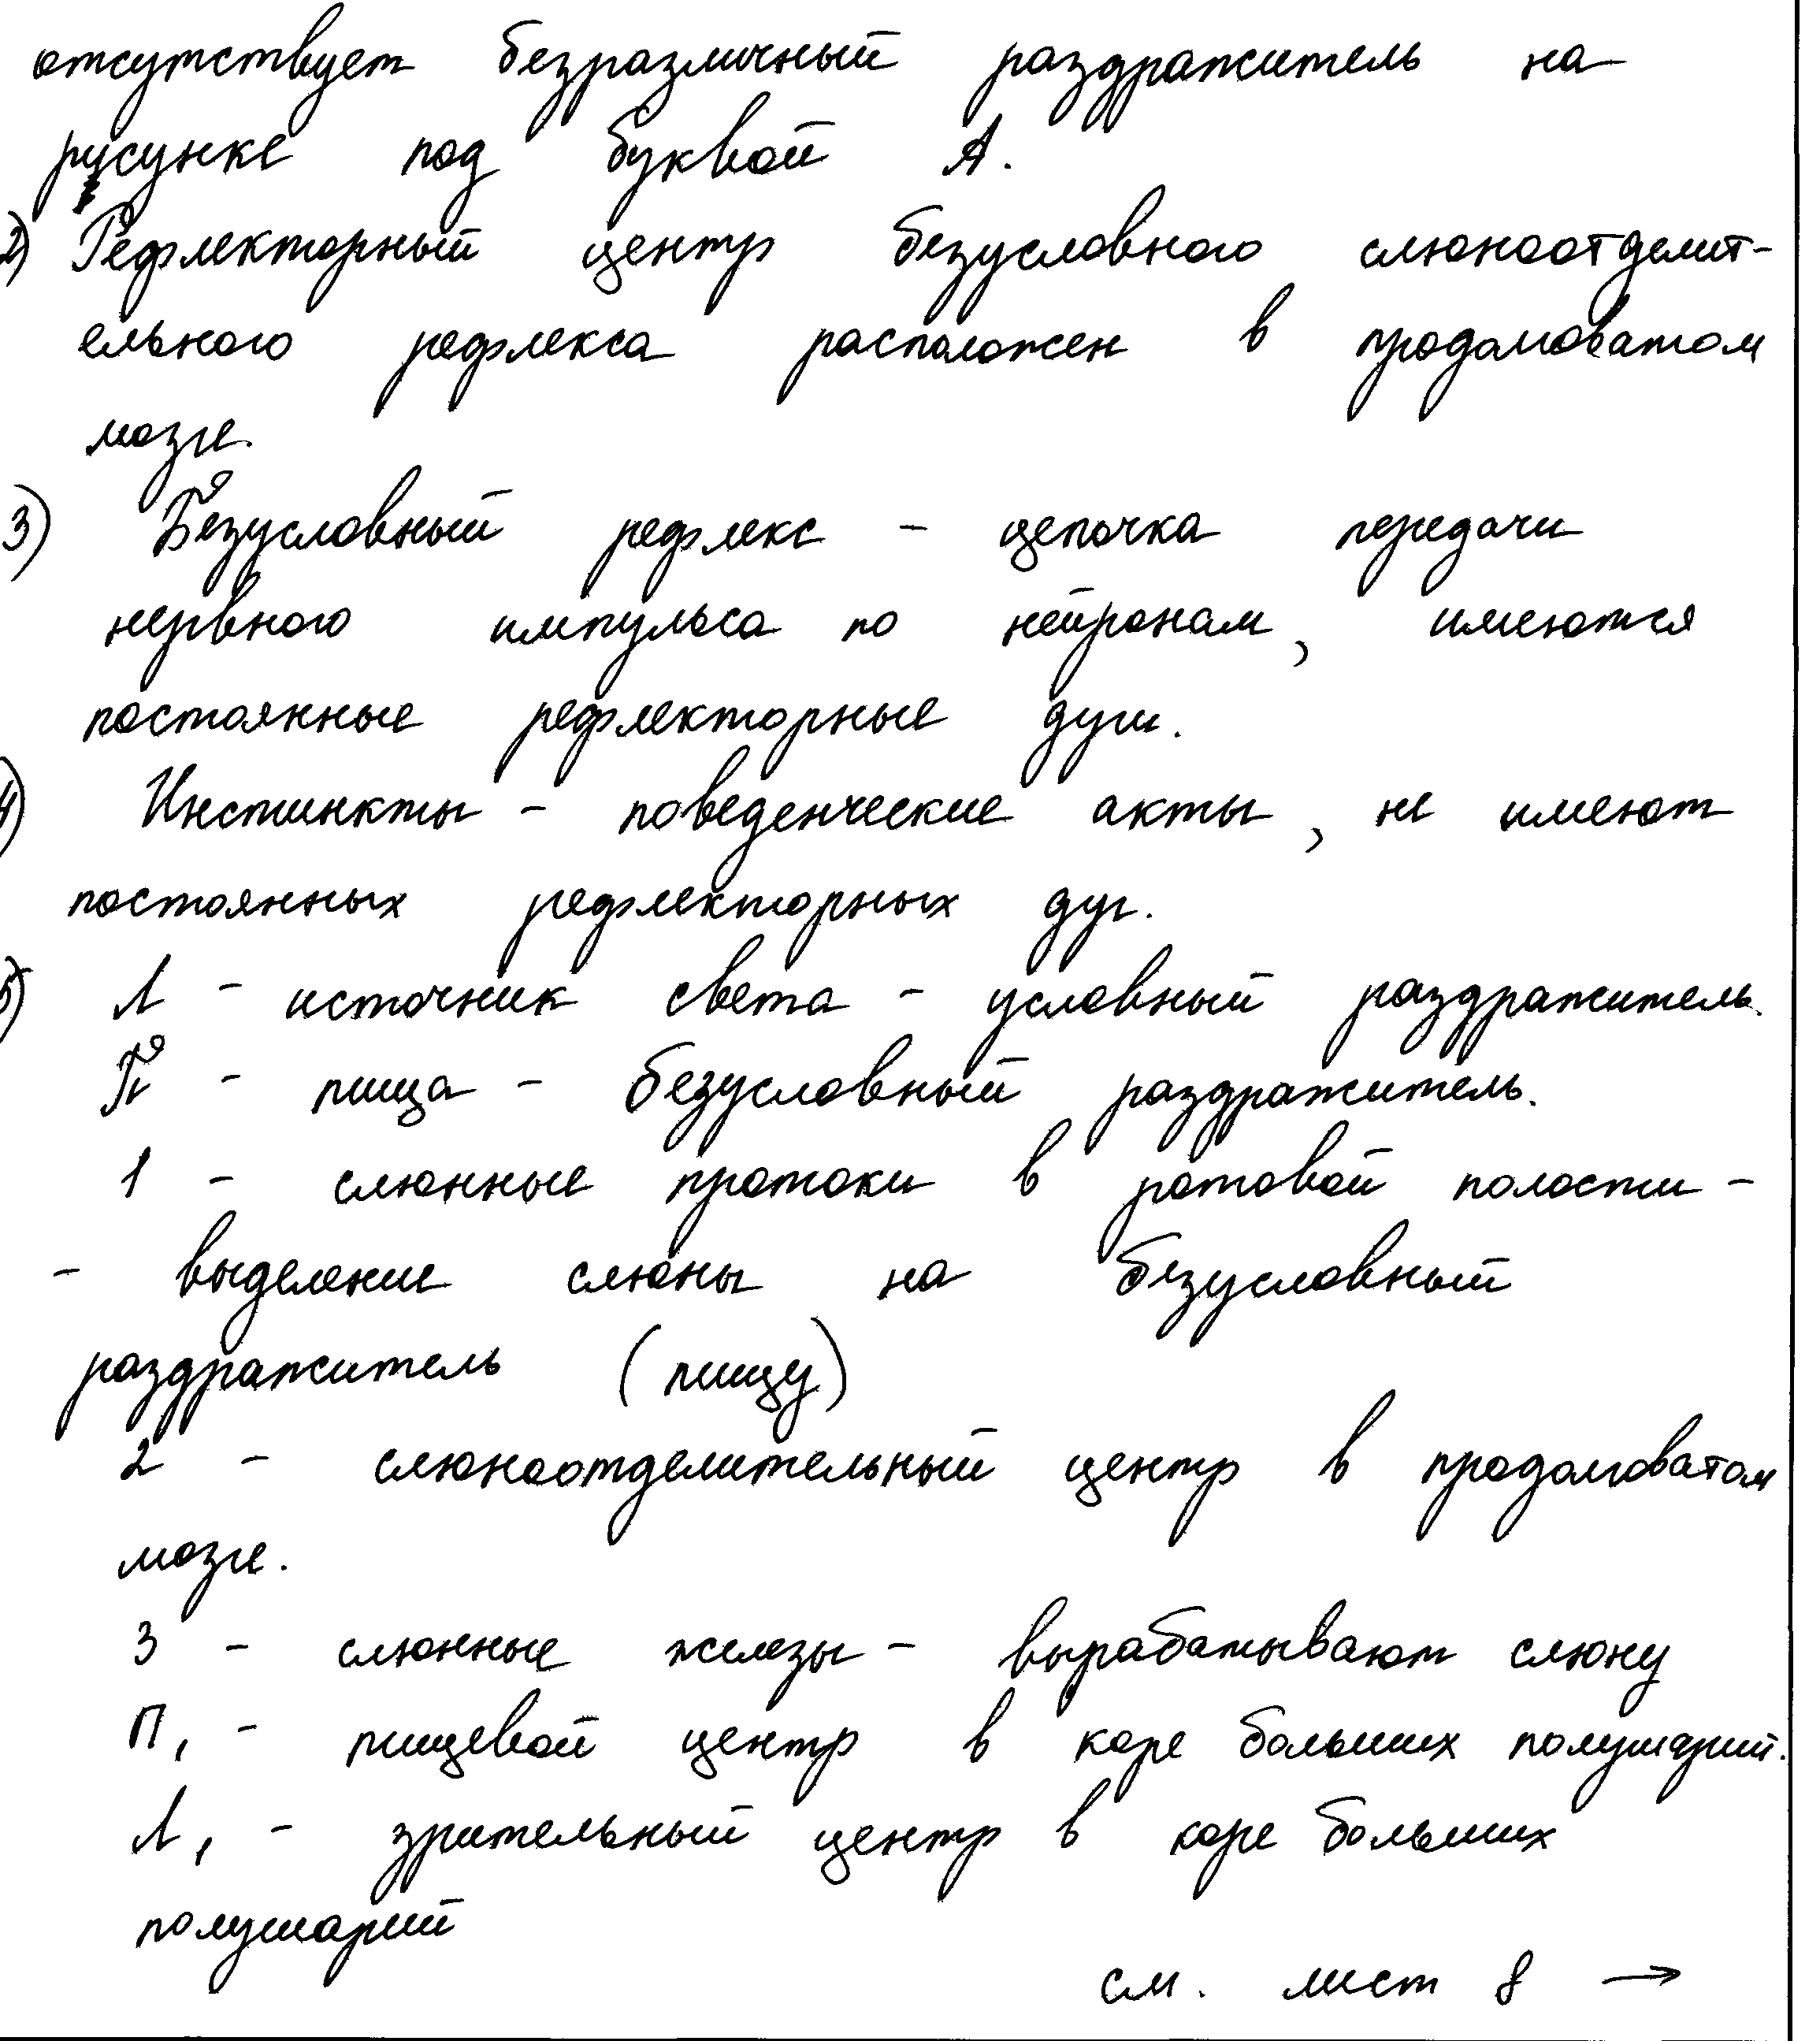 отсутствует безразличный раздражитель на
рисунке под буквой А.
2) Рефлекторный центр безусловного слюноотделит-
ельного рефлекса расположен в продолговатом
мозге.
3) Безусловный рефлекс - цепочка передачи
нервного импульса по нейронам, имеются
постоянные рефлекторные дуги.
4) Инстинкты - поведенческие акты, не имеют
постоянных рефлекторных дуг.
5) Л - источник света - условный раздражитель.
П - пища - безусловный раздражитель.
1 - слюнные протоки в ротовой полости -
- выделение слюны на безусловный
раздражитель (пищу)
2 - слюноотделительный центр в продолговатом
мозге.
3 - слюнные железы - вырабатывают слюну
П₁ - пищевой центр в коре больших полушарий.
Л₁ - зрительный центр в коре больших
полушарий
см. лист 8 →